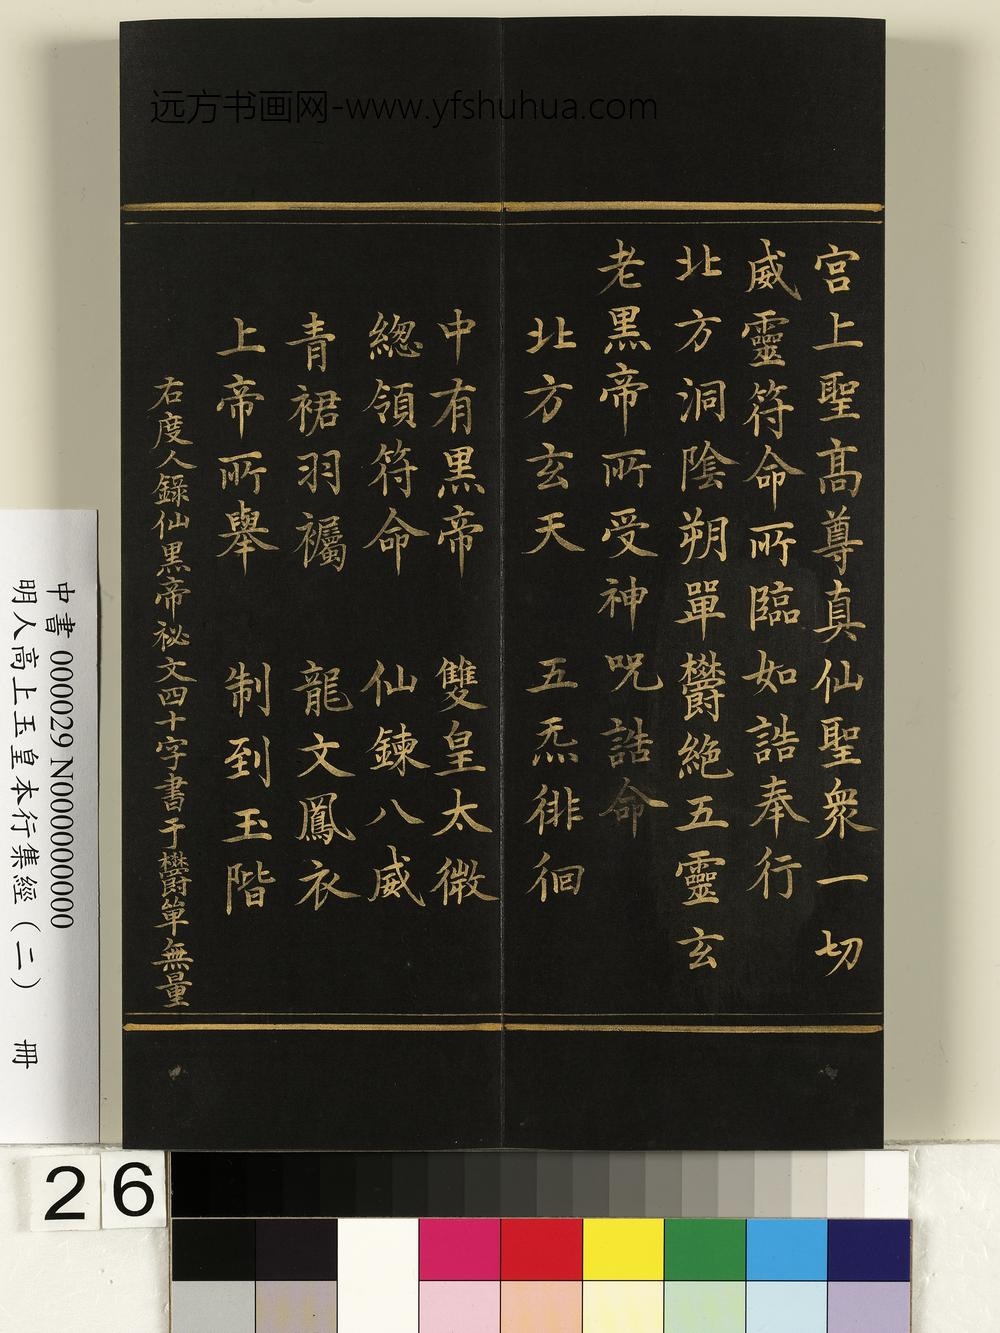 远方书画网-www.yfshuhua.com
宫上聖髙尊真仙聖衆一切
威靈符命所臨如誥奉行
北方洞陰朔單欝絶五靈玄
老黒帝所受神呪誥命
北方玄天 五炁徘徊
中有黒帝 雙皇太微
總領符命 仙鍊八威
青裙羽襡 龍文鳳衣
上帝所舉 制到玉階
右度人錄仙黒帝祕文四十字書于欝單無量
中書 000029 N000000000
明人高上玉皇本行集經（二） 冊
26